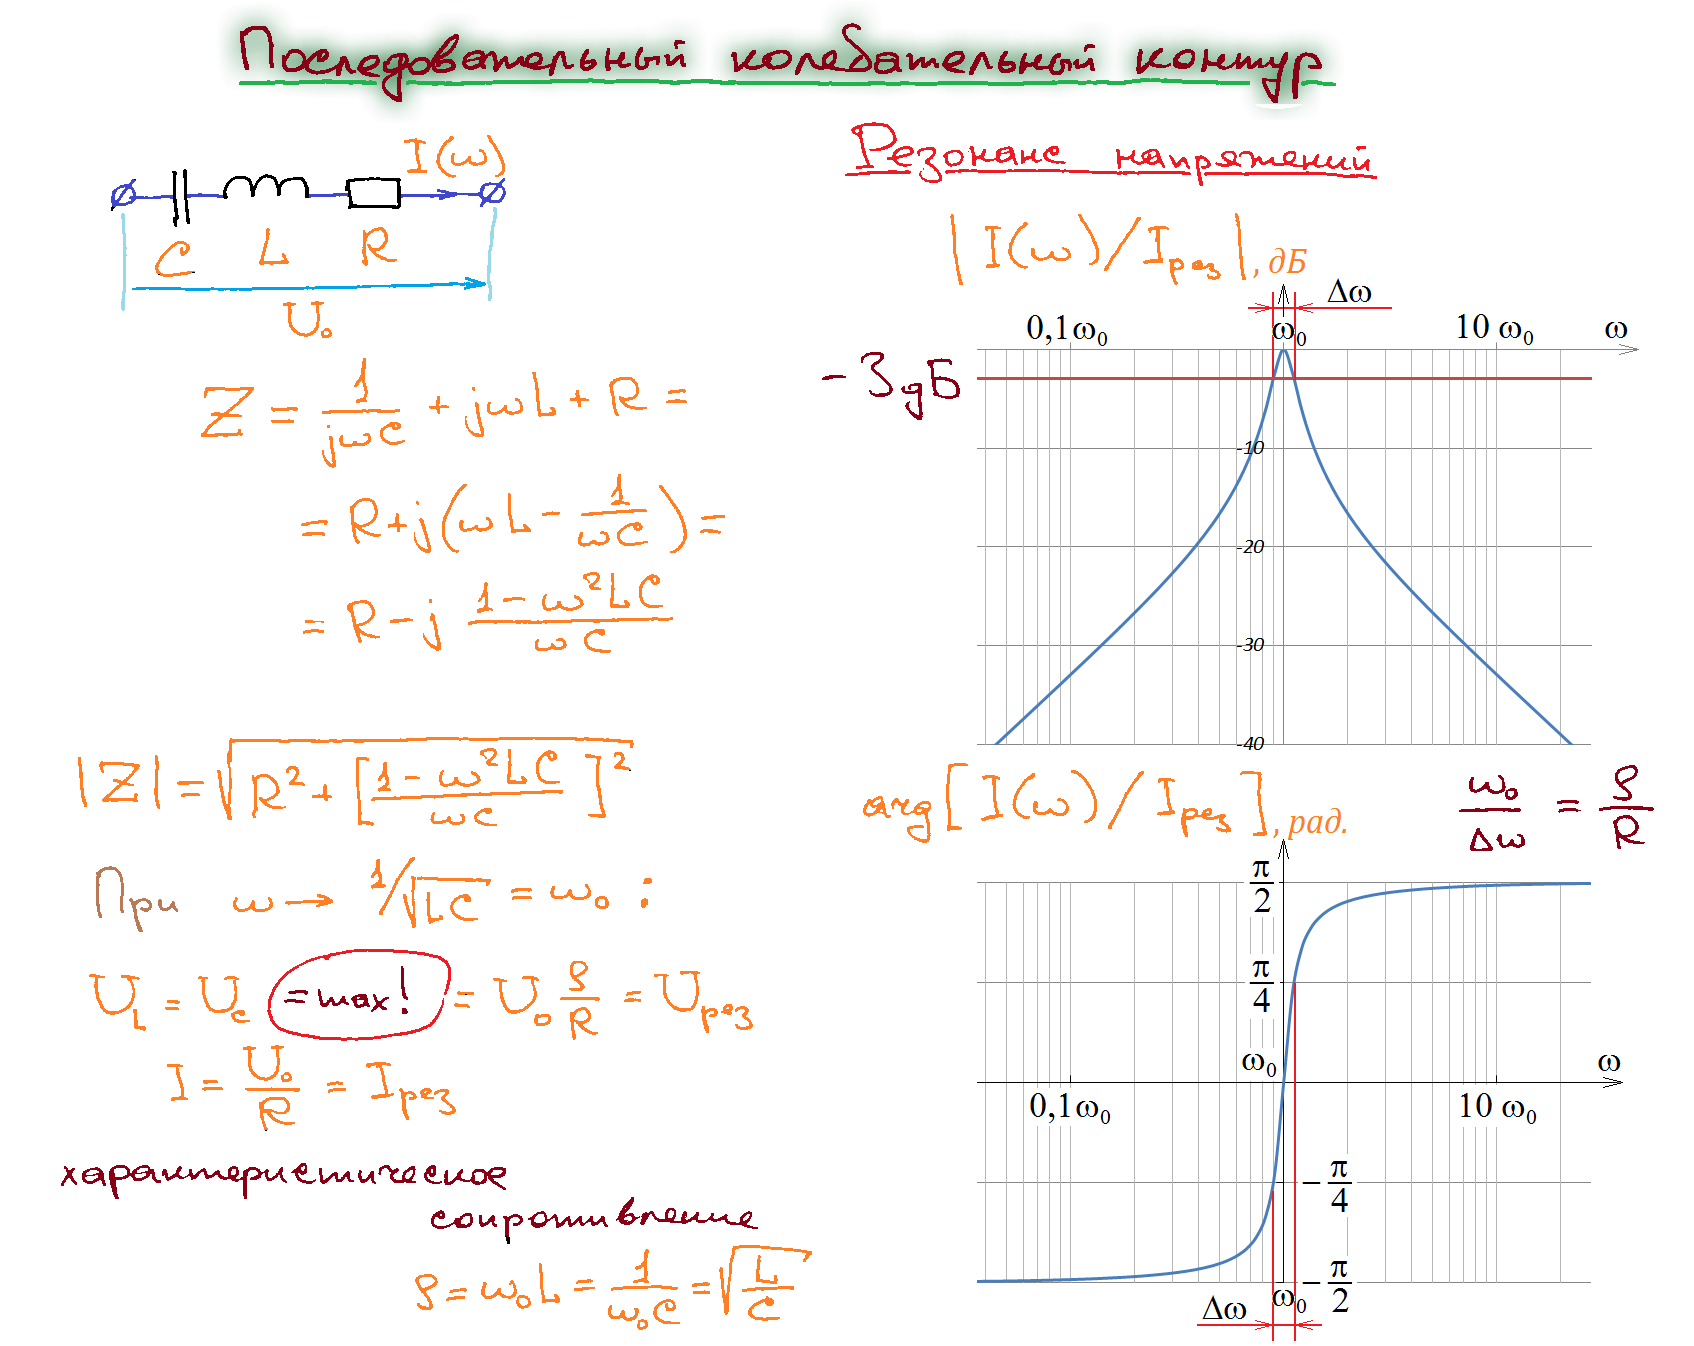 Последовательный колебательный контур
I(ω)
C L R
U₀
Z = 1/(jωC) + jωL + R =
= R + j(ωL − 1/(ωC)) =
= R − j (1 − ω²LC)/(ωC)
|Z| = √(R² + [(1 − ω²LC)/(ωC)]²)
При ω → 1/√(LC) = ω₀ :
U_L = U_C = max! = U₀ ρ/R = U_рез
I = U₀/R = I_рез
характеристическое
сопротивление
ρ = ω₀L = 1/(ω₀C) = √(L/C)
Резонанс напряжений
|I(ω)/I_рез|, дБ
Δω
0,1ω₀ ω₀ 10 ω₀ ω
−3дБ
-10
-20
-30
-40
arg[I(ω)/I_рез], рад.
ω₀/Δω = ρ/R
π/2
π/4
ω₀ ω
0,1ω₀ 10 ω₀
−π/4
−π/2
Δω ω₀